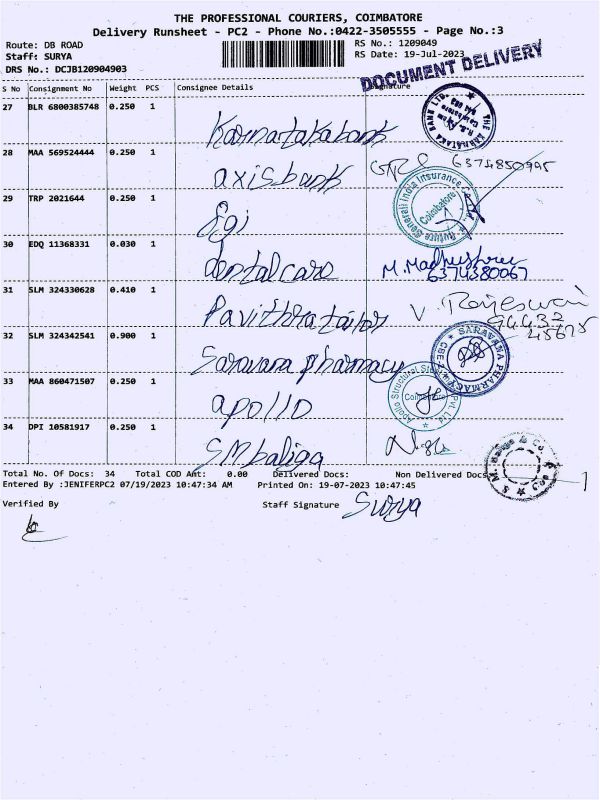 THE PROFESSIONAL COURIERS, COIMBATORE
Delivery Runsheet - PC2 - Phone No.:0422-3505555 - Page No.:3
Route: DB ROAD
RS No.: 1209049
Staff: SURYA
RS Date: 19-Jul-2023
DRS No.: DCJB120904903
DOCUMENT DELIVERY
S No Consignment No Weight PCS Consignee Details Signature
27 BLR 6800385748 0.250 1
Karnatakabank
THE KARNATAKA BANK LTD.
28 MAA 569524444 0.250 1
axisbank
6374850995
29 TRP 2021644 0.250 1
Future Generali India Insurance
Coimbatore
30 EDQ 11368331 0.030 1
dentalcare M. Madhushree
6374380067
31 SLM 324330628 0.410 1
Pavithratailor V. Rajeswari
94432
45675
32 SLM 324342541 0.900 1
Saravana pharmacy
SARAVANA PHARMACY
33 MAA 860471507 0.250 1
apollo
Apollo Structural Pvt Ltd
Coimbatore
34 DPI 10581917 0.250 1
SMbaliga
Total No. Of Docs: 34 Total COD Amt: 0.00 Delivered Docs: Non Delivered Docs
Entered By :JENIFERPC2 07/19/2023 10:47:34 AM Printed On: 19-07-2023 10:47:45
Verified By Staff Signature Surya